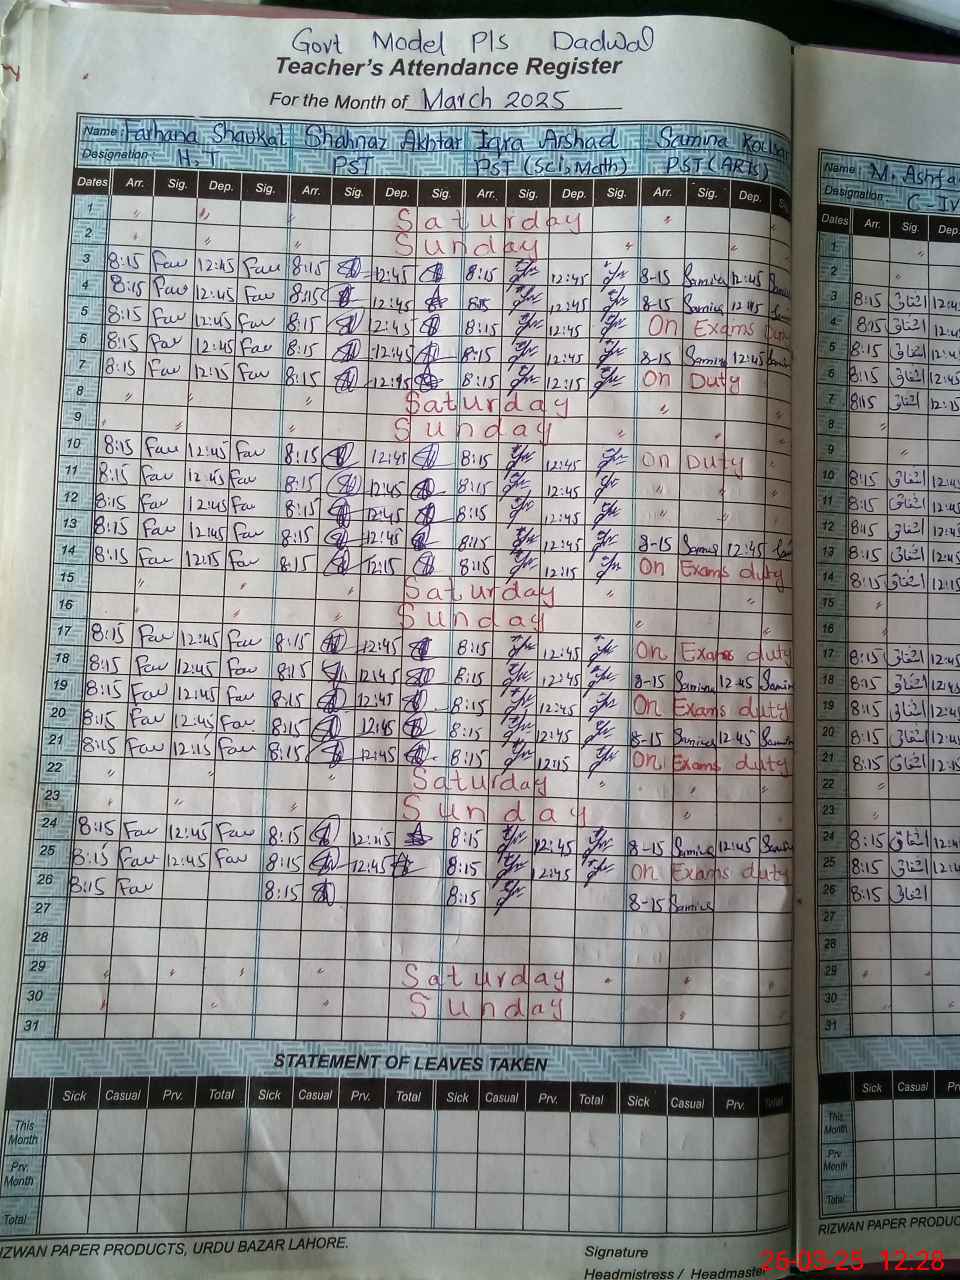 Govt Model P/s Dadwal
Teacher's Attendance Register
For the Month of March 2025
Name: Farhana Shaukat Shahnaz Akhtar Iqra Arshad Samina Kousar Name: M. Ashfa
Designation: H.T PST PST (Sci, Math) PST (ARTS) Designation: C-IV
Dates Arr. Sig. Dep. Sig. Arr. Sig. Dep. Sig. Arr. Sig. Dep. Sig. Arr. Sig. Dep. Dates Arr. Sig. Dep.
1 " " " Saturday " 1
2 " " Sunday " " 2
3 8:15 Far 12:45 Far 8:15 12:45 8:15 12:45 8-15 Samina 12:45 3 8:15 اشفاق 12:4
4 8:15 Far 12:45 Far 8:15 12:45 8:15 12:45 8-15 Samina 12:45 4 8:15 اشفاق 12:4
5 8:15 Far 12:45 Far 8:15 12:45 8:15 12:45 On Exams 5 8:15 اشفاق 12:4
6 8:15 Far 12:45 Far 8:15 12:45 8:15 12:45 8-15 Samina 12:45 6 8:15 اشفاق 12:45
7 8:15 Far 12:15 Far 8:15 12:15 8:15 12:15 On Duty 7 8:15 اشفاق 12:15
8 " " Saturday " 8 "
9 " " " Sunday " " 9 "
10 8:15 Far 12:45 Far 8:15 12:45 8:15 12:45 On Duty 10 8:15 اشفاق 12:4
11 8:15 Far 12:45 Far 8:15 12:45 8:15 12:45 " " 11 8:15 اشفاق 12:45
12 8:15 Far 12:45 Far 8:15 12:45 8:15 12:45 " " 12 8:15 اشفاق 12:4
13 8:15 Far 12:45 Far 8:15 12:45 8:15 12:45 8-15 Samina 12:45 13 8:15 اشفاق 12:45
14 8:15 Far 12:15 Far 8:15 12:15 8:15 12:15 On Exams duty 14 8:15 اشفاق 12:15
15 " " Saturday " 15 "
16 " " Sunday " " 16 "
17 8:15 Far 12:45 Far 8:15 12:45 8:15 12:45 On Exams duty 17 8:15 اشفاق 12:45
18 8:15 Far 12:45 Far 8:15 12:45 8:15 12:45 8-15 Samina 12:45 Samin 18 8:15 اشفاق 12:45
19 8:15 Far 12:45 Far 8:15 12:45 8:15 12:45 On Exams duty 19 8:15 اشفاق 12:4
20 8:15 Far 12:45 Far 8:15 12:45 8:15 12:45 8-15 Samina 12:45 Samin 20 8:15 اشفاق 12:4
21 8:15 Far 12:15 Far 8:15 12:45 8:15 12:15 On Exams duty 21 8:15 اشفاق 12:1
22 " " " Saturday " " 22 "
23 " " " Sunday " " 23 "
24 8:15 Far 12:45 Far 8:15 12:45 8:15 12:45 8-15 Samina 12:45 24 8:15 اشفاق 12:4
25 8:15 Far 12:45 Far 8:15 12:45 8:15 12:45 On Exams duty 25 8:15 اشفاق 12:4
26 8:15 Far 8:15 8:15 8-15 Samina 26 8:15 اشفاق
27 27
28 28
29 " " " " Saturday " " " 29 " "
30 " " " Sunday " " 30 "
31 31
STATEMENT OF LEAVES TAKEN
Sick Casual Prv. Total Sick Casual Prv. Total Sick Casual Prv. Total Sick Casual Prv. Total Sick Casual Pr
This Month This Month
Prv. Month Prv. Month
Total Total
IZWAN PAPER PRODUCTS, URDU BAZAR LAHORE. RIZWAN PAPER PRODUC
Signature
Headmistress / Headmaster
26-03-25 12:28